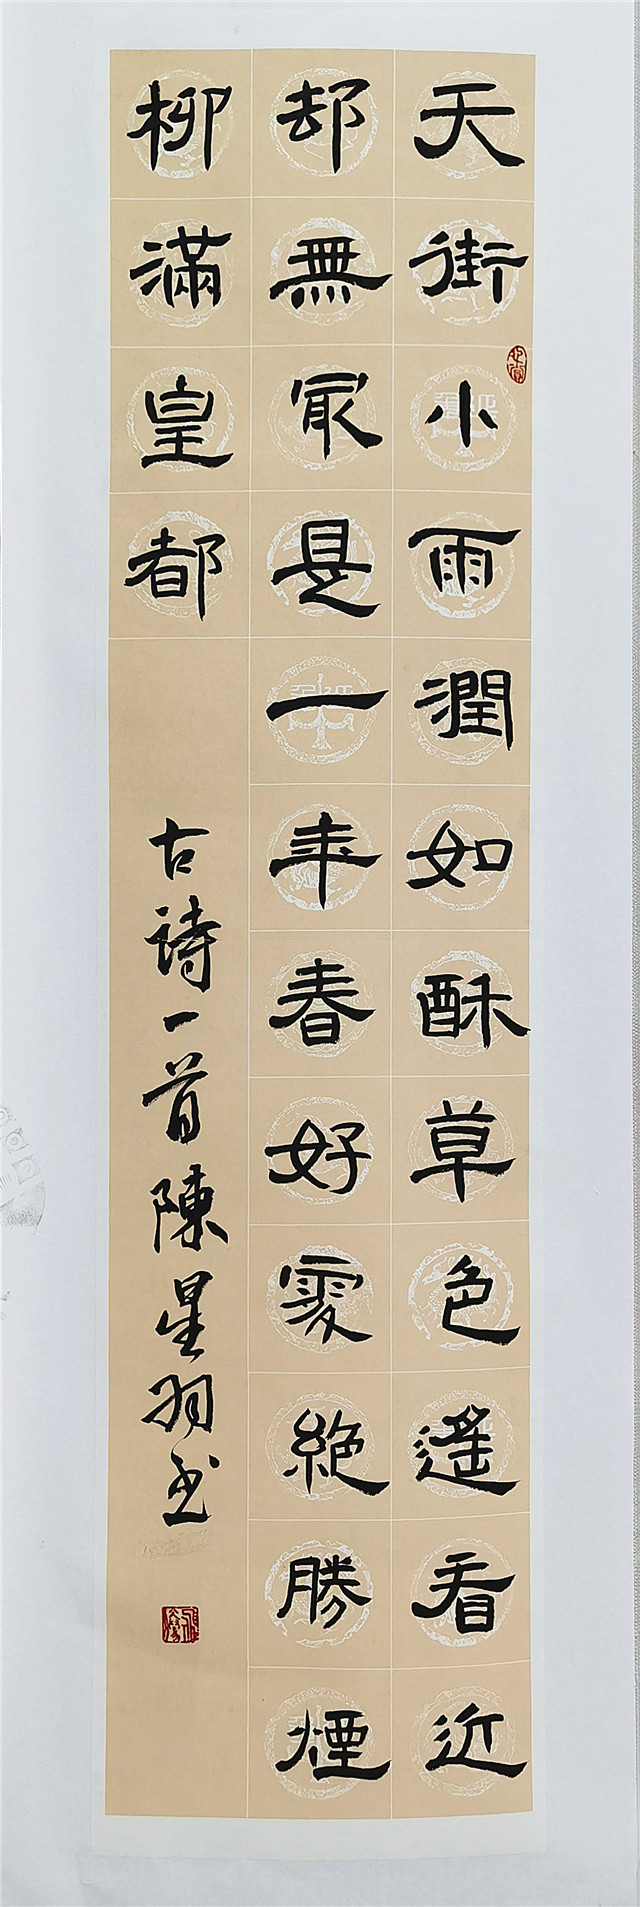 天街小雨潤如酥草色遙看近
却無冣是一年春好處絶勝煙
柳滿皇都
古詩一首陳星羽书